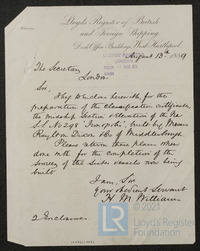 Lloyds Register of British
and Foreign Shipping
Dock Office Buildings West Hartlepool
August 13th 1889
The Secretary
London
Sir,
herewith for the
preparation of the classification certificate,
the midship section & elevation of the
S.S. No 248 built by Messrs
Raylton Dixon & Co of Middlesbrough.
Please return these plans when
done with for the completion of the
surveys of the vessels now being
built.
I am, Sir
Your obedient Servant
H. M. Williams
2 Enclosures
© 2021
Lloyd's Register
Foundation